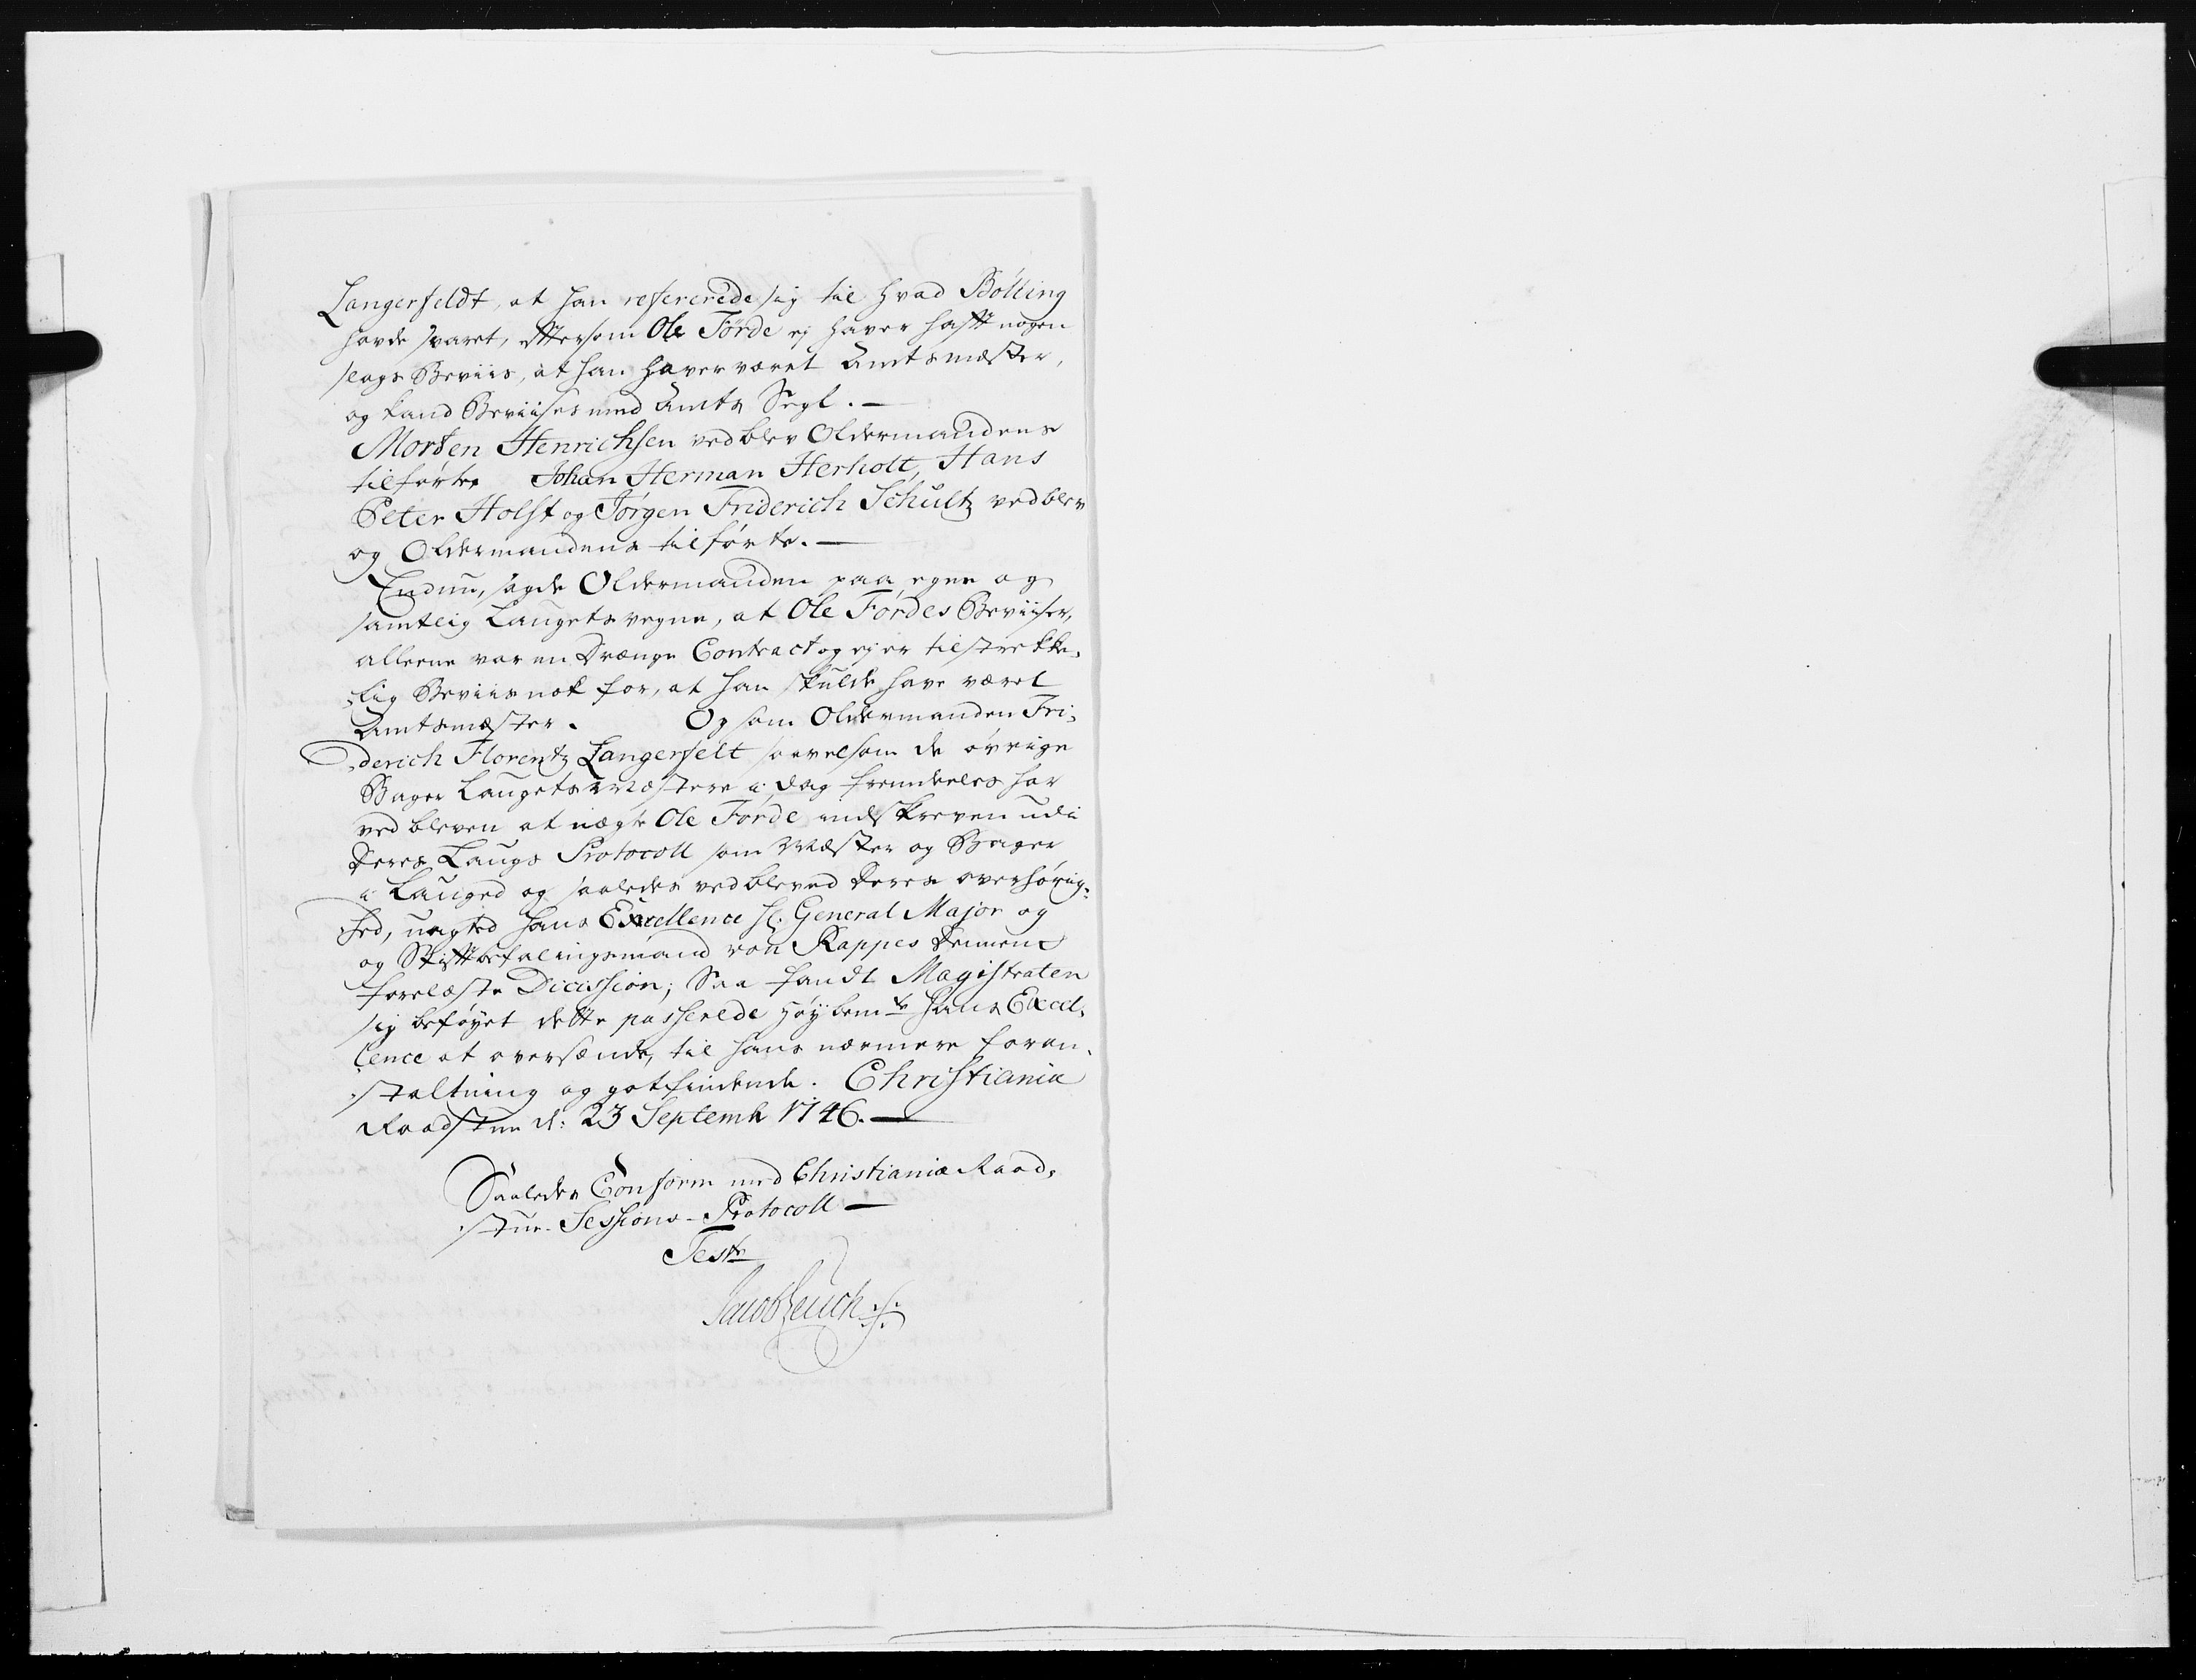 Langerfeldt, at han refererede sig til hvad Bölling
hafde svaret, eftersom Ole Förde ej haver hafft nogen
slags Beviis, at han haver været Amtsmæster,
og kand Beviises med Amts Segl. —
Morten Henrichsen vedblev Oldermandens
tilförte Johan Herman Herholt, Hans
Peter Holst og Jörgen Friderich Schultz vedblev
og Oldermandens tilförte. —
Endnu, sagde Oldermanden paa egne og
samtlig Laugets vegne, at Ole Fördes Beviiser,
alleene var en Drænge Contract og ej er tilstrekke-
lig Beviis nok for, at han skulde have været
Amtsmæster. Og som Oldermanden Fri-
derich Florentz Langerfelt saavelsom de övrige
Bager Laugets Mæstere i dag fremdeeles har
vedbleven at nægte Ole Förde indskreven udi
Deres Laugs Protocoll som Mæster og Bager
i Lauged og saaledes vedbleved Deres overhörig-
hed, uagted hans Excellence Hr. General Major og
og Stifftbefalingsmand von Rappes Demmens
forelæste Dicission; Saa fandt Magistraten
sig beföyet dette passerede Höybemte hans Excel-
lence at oversænde, til hans nærmere foran-
staltning og gotfindende. Christiania
Raadstue d: 23 Septembr 1746. —
Saaledes Conform med Christianiæ Raad-
stue-Sessions-Protocoll —
Teste
Jacob Leuch